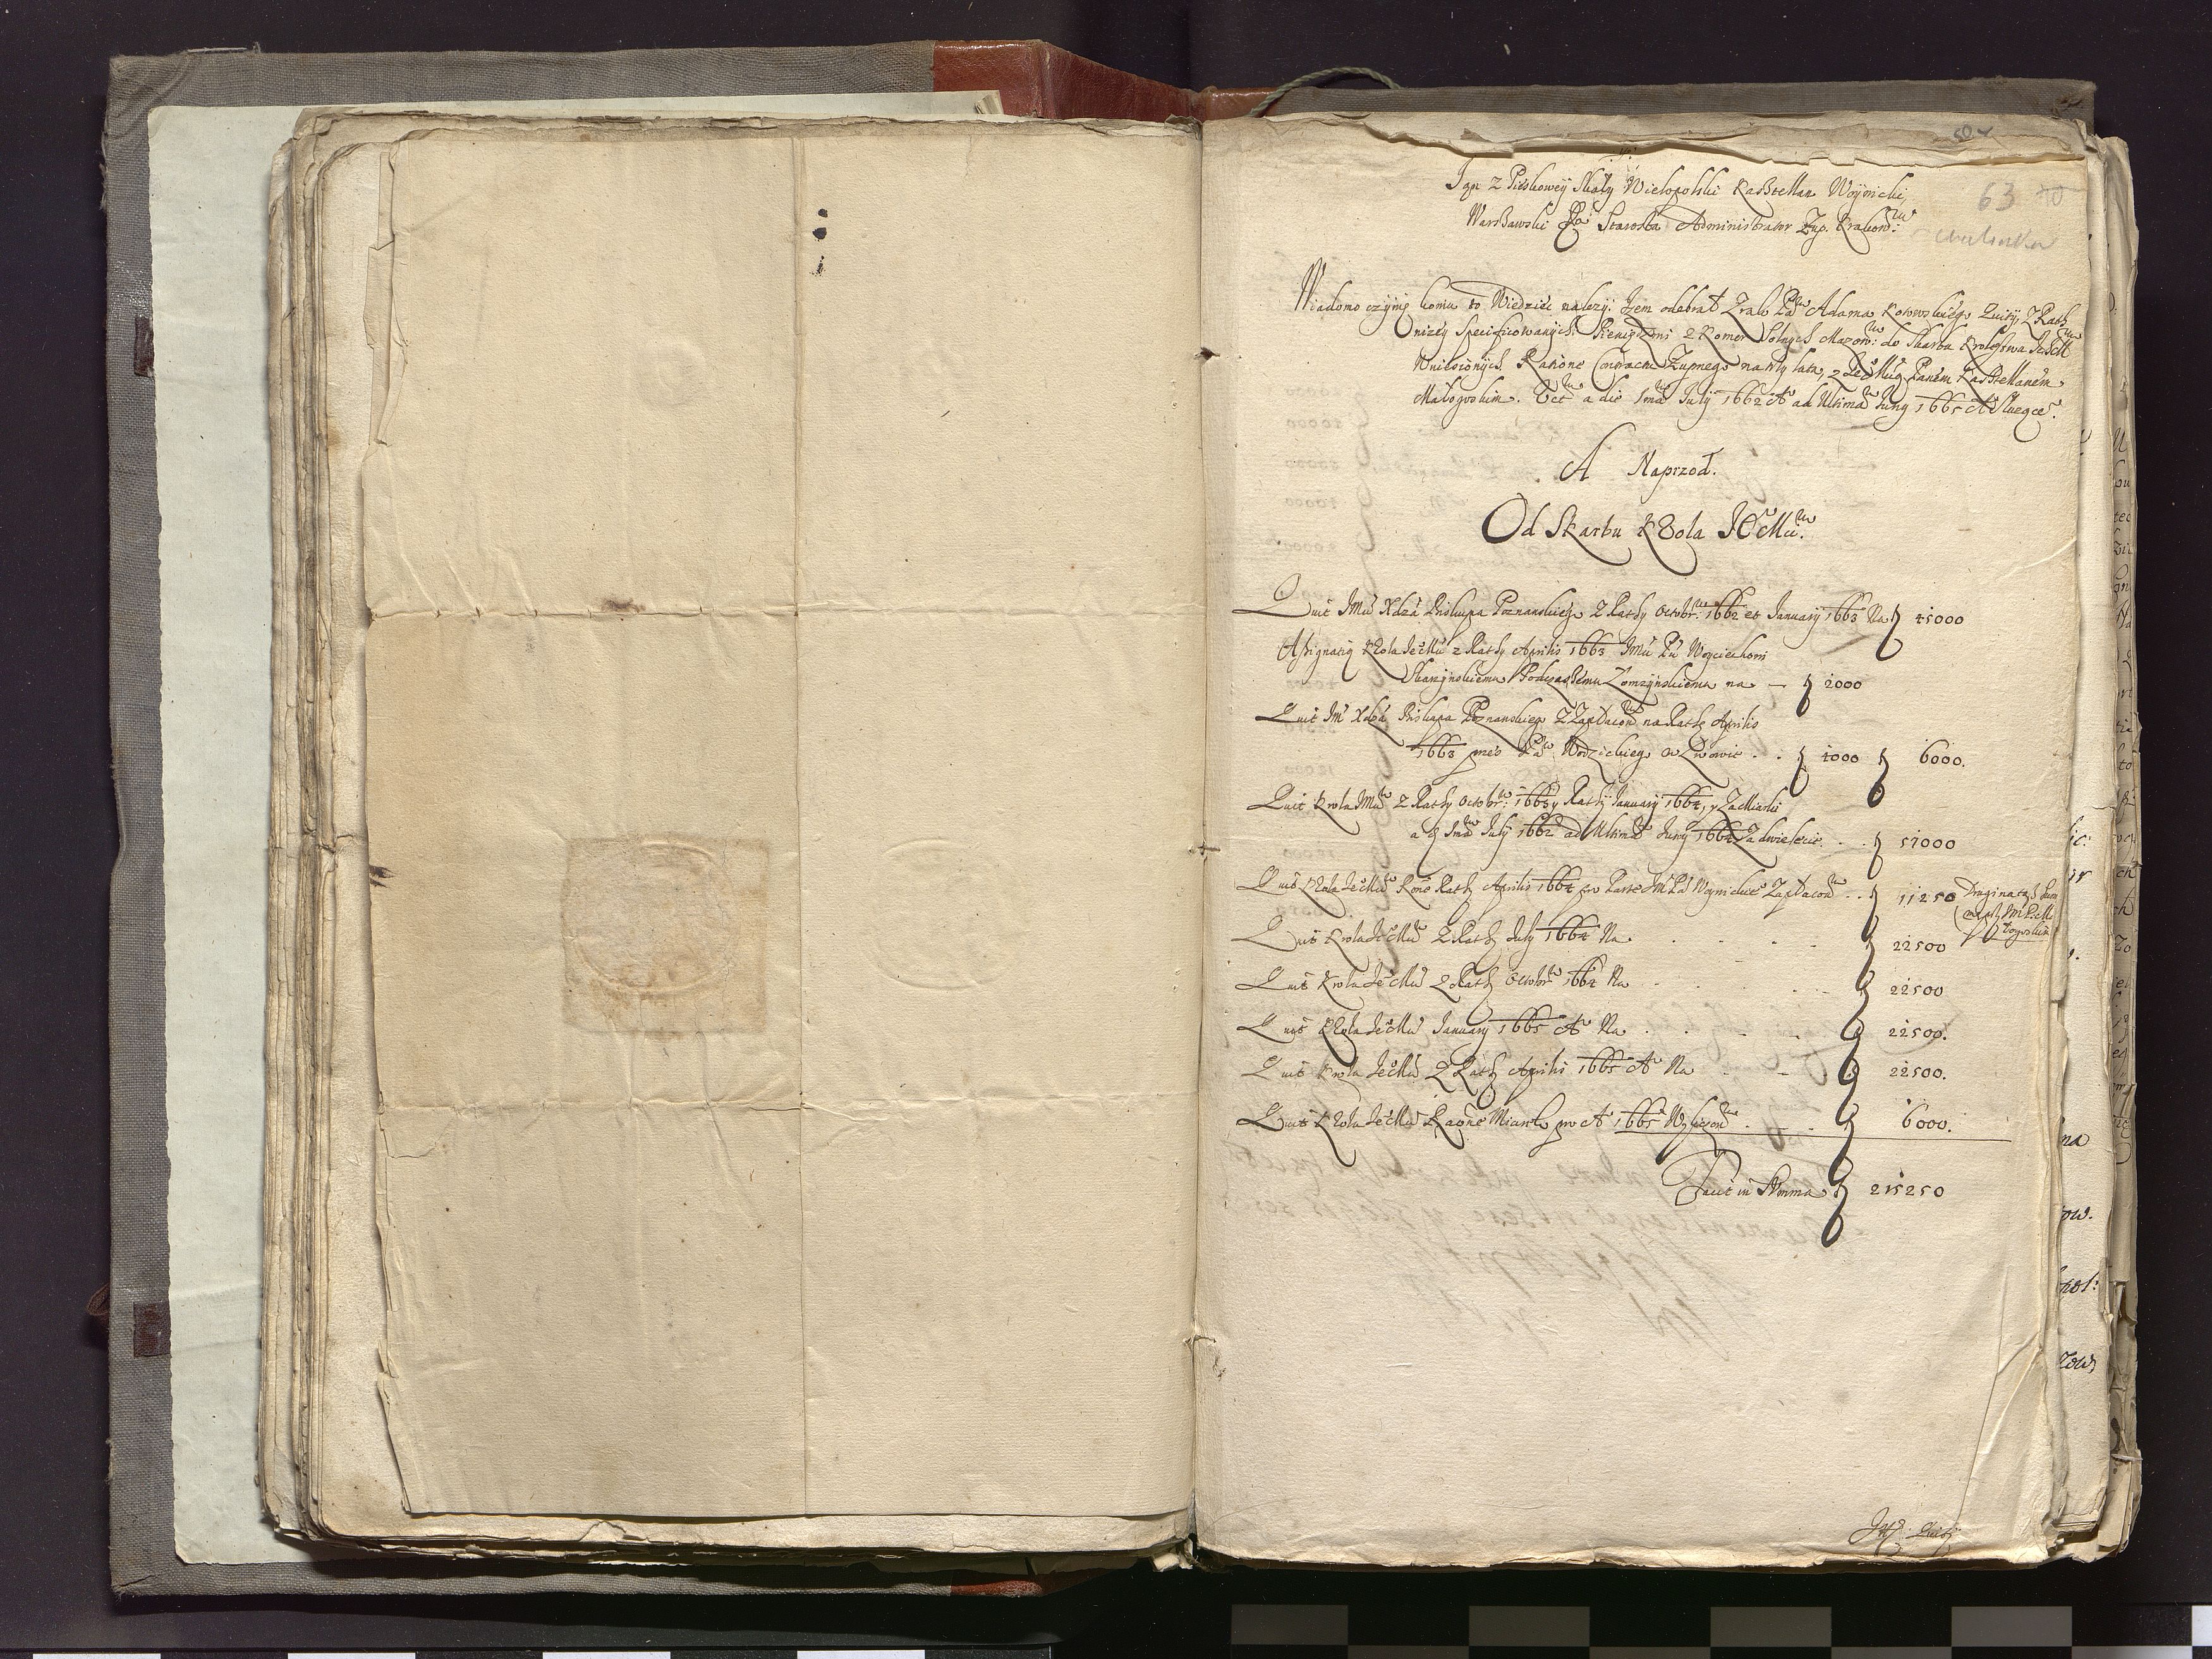 63
Jan z Pieskowey Skały Wielopolski Kasztellan Woynicki,
Warszawski &c. Starosta Administrator Żup. Krakow:
Wiadomo czynię komu to Wiedzieć należy. Jzem odebrał Zrąk Pa Adama Kotowskiego Quity, Z Rath
niżey Specificowanych Pieniędzmi z Komor Solnych Mazow: do Skarbu Krolestwa JchM
Wniesionych, Ratione Contractu Żupnego na trzy lata, z Jeo Mcią Panem Kasztellanem
Małogoskim. Vet a die 1ma July 1662 A ad Ultimam Juny 1665 A Sluzące.
A Naprzod.
Od Skarbu Krola JeoMci.
Quit JMci Xdza Biskupa Poznanskiego z Rathy Octobr: 1662 et January 1663 Na 45000
Assignatią Krola JeoMci z Rathy Aprilis 1663 JMci Pu Woyciechowi
Skarzynskiemu Podczaszemu Łomzynskiemu na — 2000
Quit JM Xdza Biskupa Poznanskiego na Rathę Aprilis
1663 przez Pa Wodzickiego w Lwowie . . 4000 6000.
Quit Krola JMci z Rathy Octobr: 1663 y Rathy January 1664, y Za Miarki
a 1ma July 1662 ad Ultimam Juny 1664 Za dwie lecie . . 57000
Quit Krola JeoMci Rathy Aprilis 1664 pro Parte JM Pa Woynickie . . 11250
Quit Krola JeoMci Z Rathy July 1664 Na 22500
Quit Krola JeoMci Z Rathy Octobr 1664 Na 22500
Quit Krola JeoMci January 1665 A Na 22500.
Quit Krola JeoMci Z Rathy Aprilis 1665 A Na 22500.
Quit Krola JeoMci Raone Miarek pro A 1665 6000.
Facit in Summa 215250